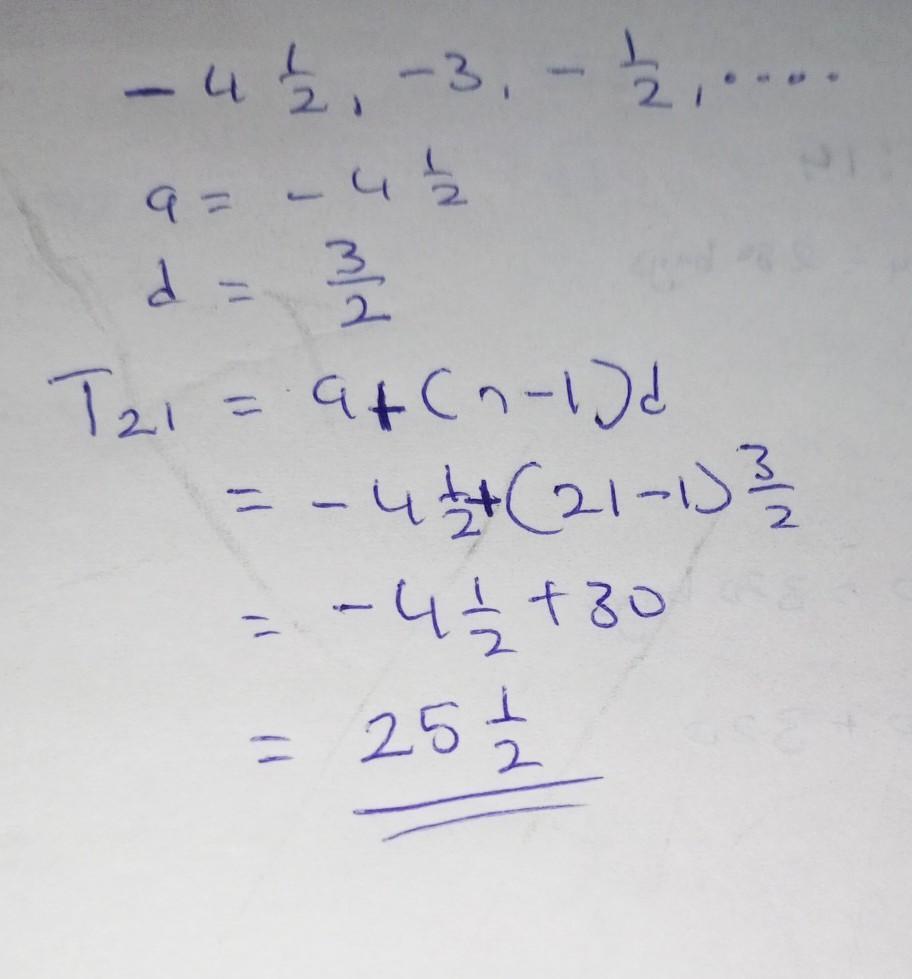 - 4 1/2, -3, - 1/2, .....
a = - 4 1/2
d = 3/2
T₂₁ = a+(n-1)d
= - 4 1/2 + (21-1) 3/2
= - 4 1/2 + 30
= 25 1/2